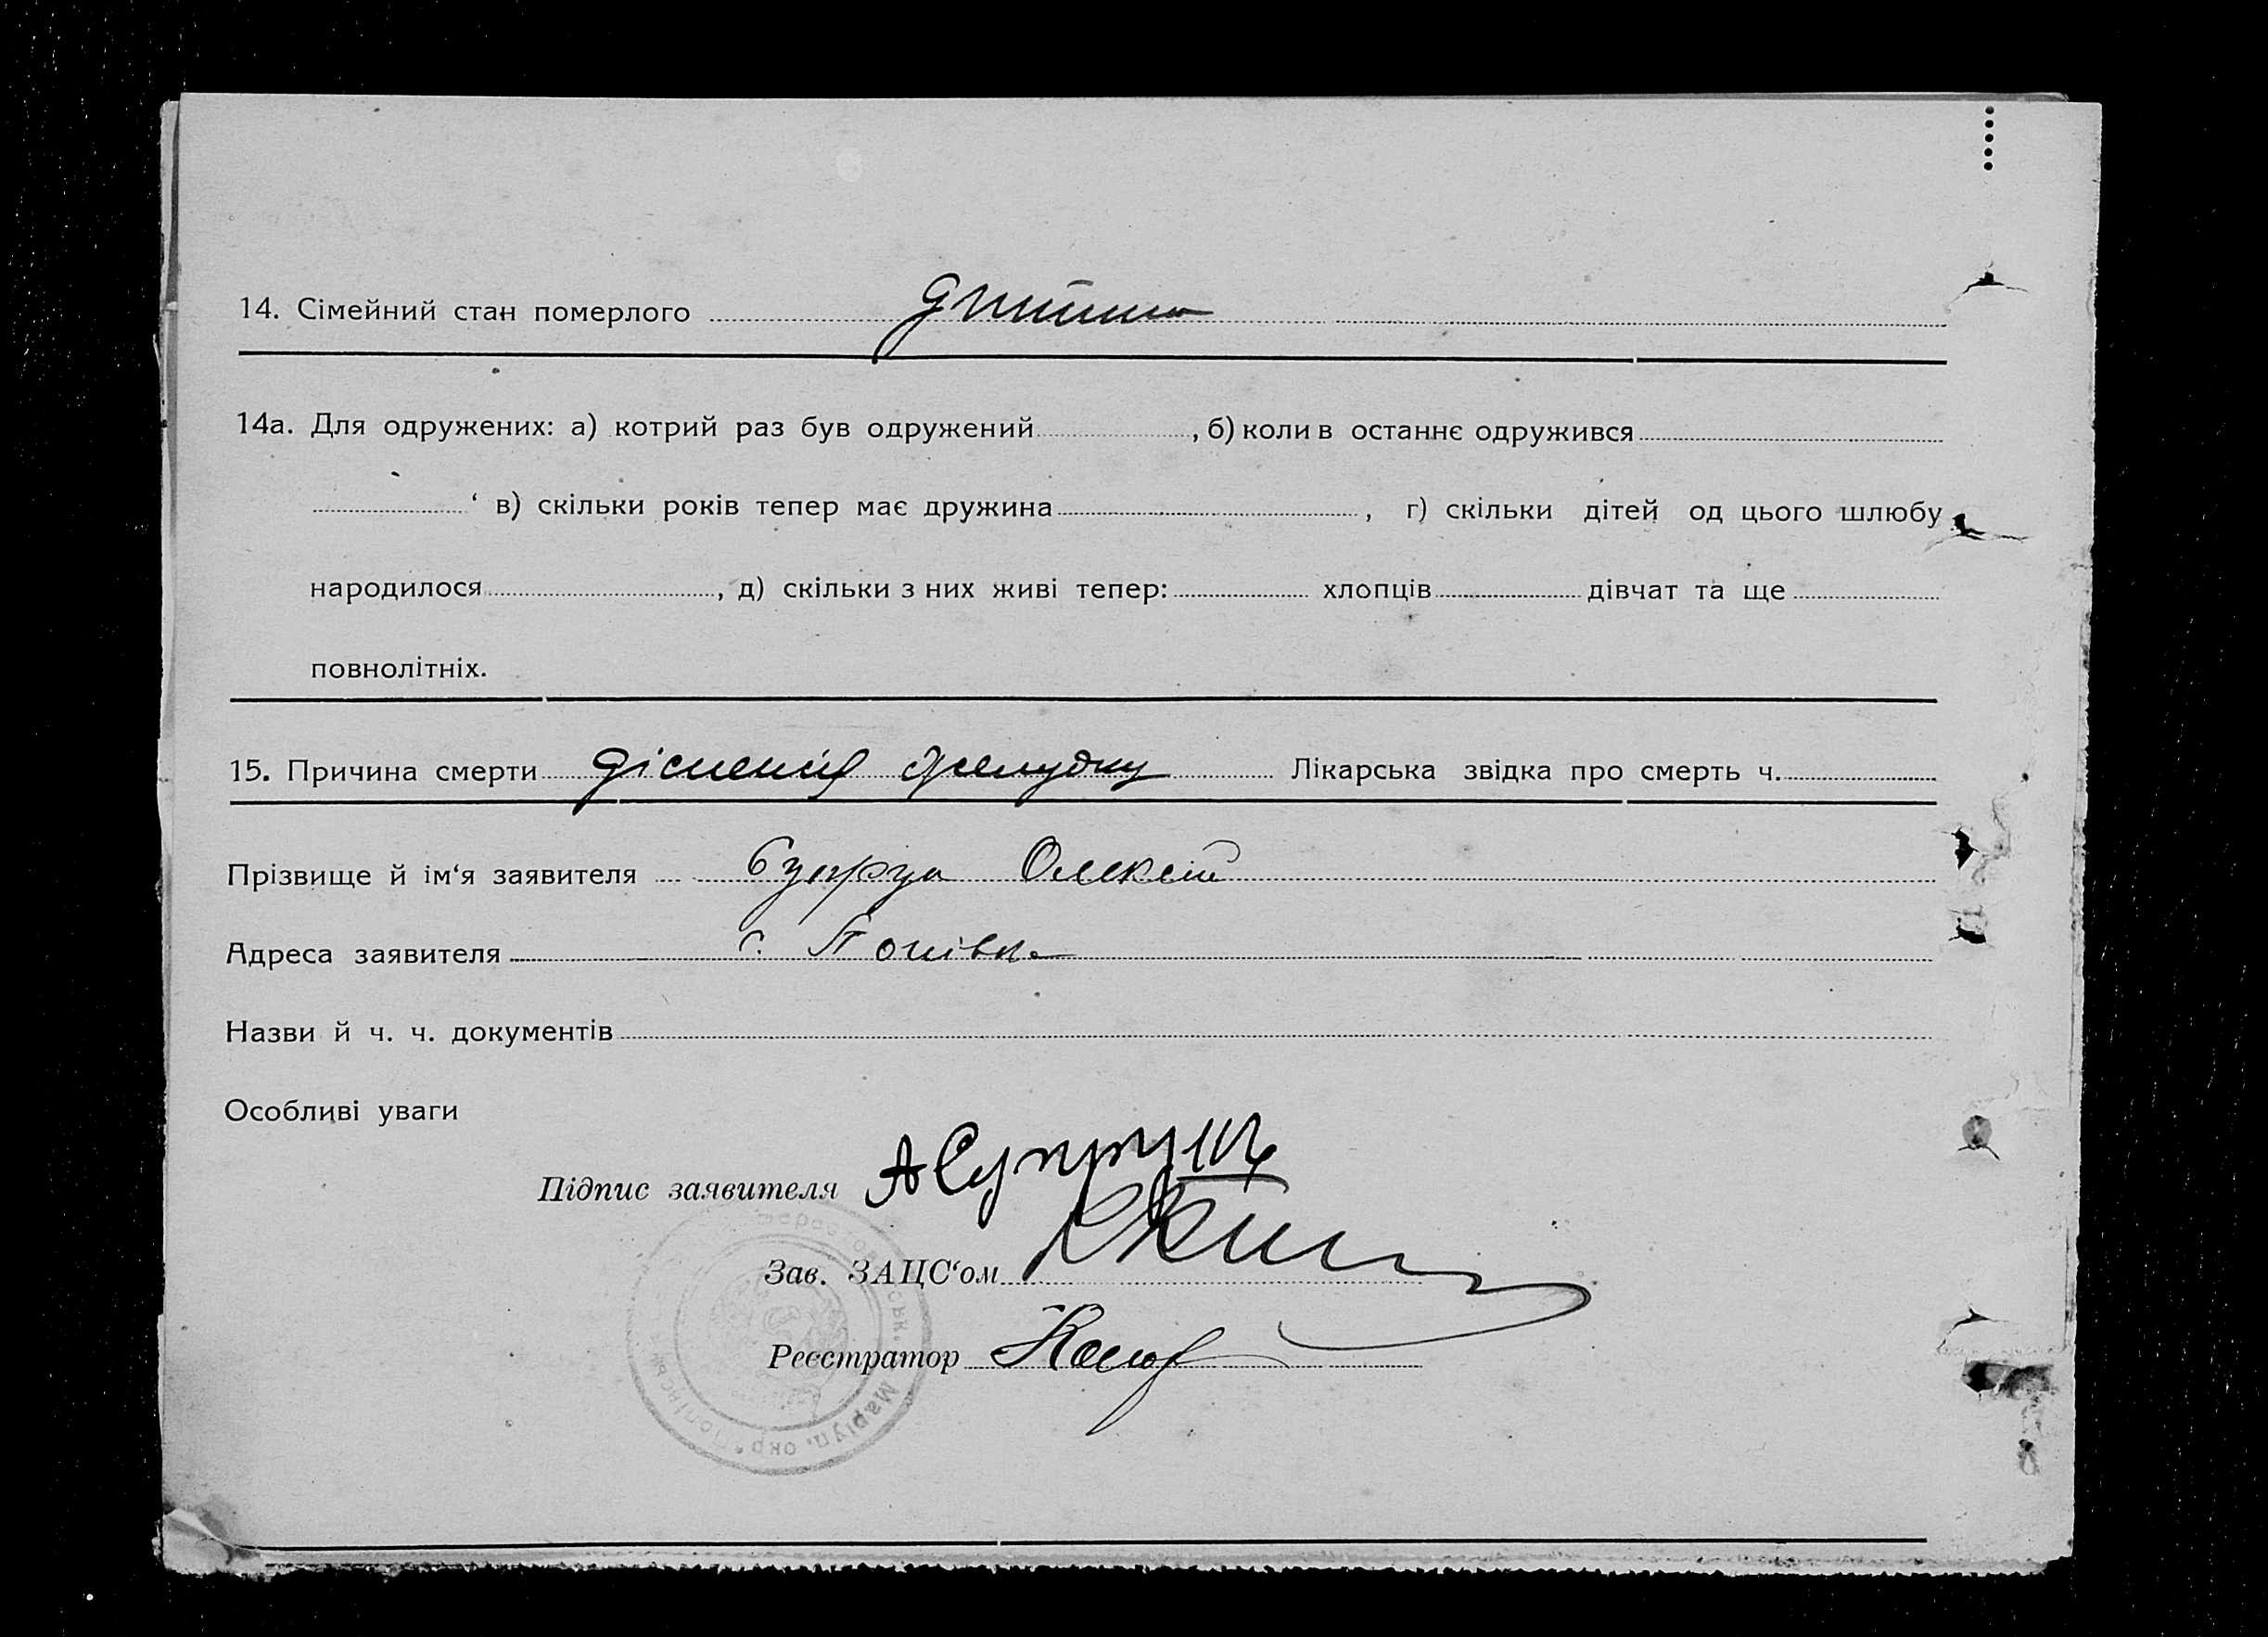 14. Сімейний стан померлого дитина
14а. Для одружених: а) котрий раз був одружений , б) коли в останнє одружився
‘ в) скільки років тепер має дружина , г) скільки дітей од цього шлюбу
народилося , д) скільки з них живі тепер: хлопців дівчат та ще
повнолітніх.
15. Причина смерти желудку Лікарська звідка про смерть ч.
Прізвище й ім‘я заявителя Супрун Олексій
Адреса заявителя с.
Назви й ч. ч. документів
Особливі уваги
Підпис заявителя А Супрун
Зав. ЗАЦС‘ом
Реєстратор
Маріуп. окр.